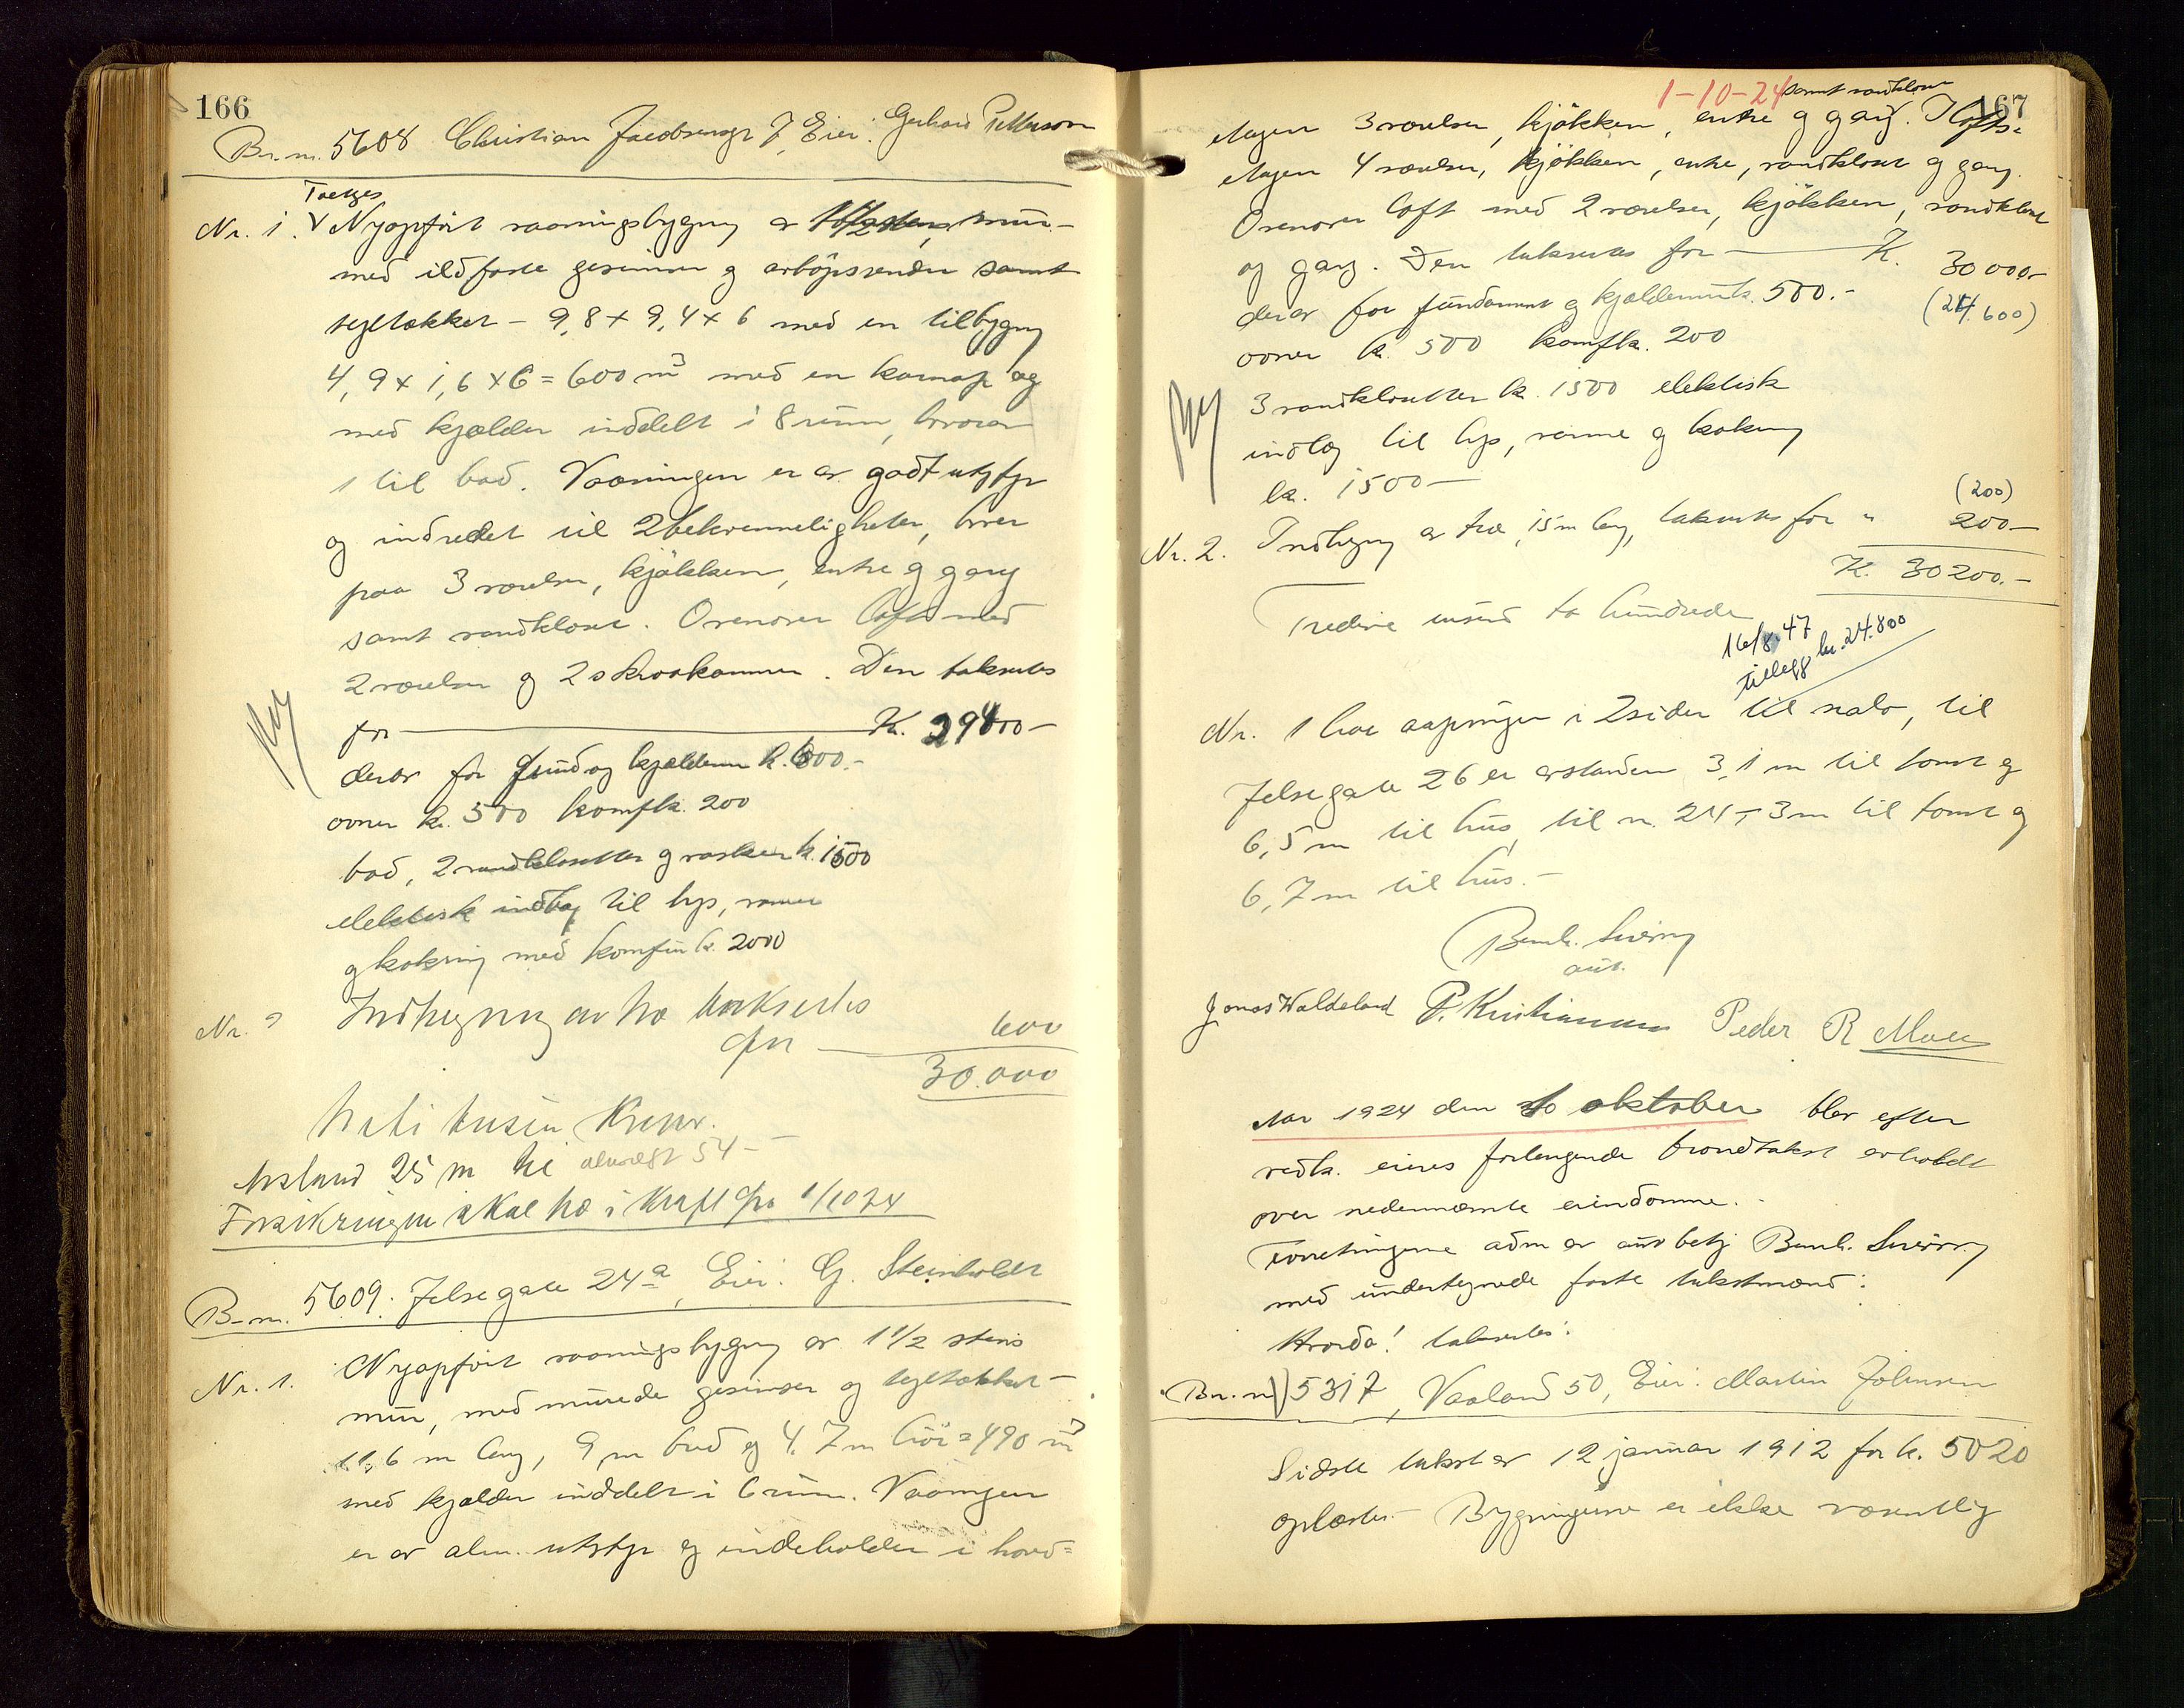 166
Br. nr. 5608 Christian Jacobsensgt 7, Eier: Gerhard Pettersen
Toetges
Nr. 1. Nyopført vaaningsbygning av mur
med ildfaste gesimser og avløpsrender samt
tegltækket - 9,8 x 9,4 x 6 med en tilbygning
4,9 x 1,6 x 6 = 600 m³ med en karnap og
med kjælder inddelt i 8 rum, hvorav
1 til bad. Vaaningen er av godt utstyr
og indredet til 2 bekvemmeligheter, hver
paa 3 værelser, kjøkken, entre og gang
samt vandklosset. Ovenover loft med
2 værelser og 2 skraakammer. Den takseres
for K. 29400-
derav for fund og kjældermur k. 600.-
ovner kr. 500 komf kr. 200
bad, 2 vandklosetter og vasker k. 1500
elektrisk indlæg til lys, varme
og kokning med komfur kr. 2000
Nr. 2 Indhegning av træ taksertes
for 600
30.000
Treti tusen Kroner.
Avstand 25 m til 54 -
Forsikringen skal træ i kraft fra 1/10 24
B-nr. 5609. Jelsegate 24a, Eier: G. Steinholdt
Nr. 1. Nyopført vaaningsbygning av 1 1/2 stens
mur, med murede gesimser og tegltækket -
11,6 m lang, 9 m bred og 4,7 m høi = 490 m³
med kjælder inddelt i 6 rum. Vaaningen
er av alm. utstyr og indeholder i hoved=
1-10-24
samt vandkloset
167
etagen 3 værelser, kjøkken, entre og gang. I lofts=
etagen 4 værelser, kjøkken, entre, vandkloset og gang.
Ovenover loft med 2 værelser, kjøkken, vandkloset
og gang. Den takseres for K. 30 000.-
derav for fundament og kjældermur k. 500.- (24.600)
ovner kr. 500 komf kr. 200
3 vandklosetter kr. 1500 elektrisk
indlæg til lys, varme og kokning
kr. 1500 -
(200)
Nr. 2. Indhegning av træ, 15 m lang, takseres for " 200 -
K. 30200.-
Tredive tusend to hundrede
16/8.47
tillegg kr. 24.800
Nr. 1 har aapninger i 2 sider til nabo, til
Jelsegate 26 er avstanden 3,1 m til tomt og
6,5 m til hus, til nr. 24 - 3 m til tomt og
6,7 m til hus.-
Bernh. Sværing
aut.
Jonas Waldeland P. Kristiansen Peder R Moen
Aar 1924 den 10 oktober blev efter
vedk. eieres forlangende brandtakst avholdt
over nedennævnte eiendomme.-
Forretningerne adm av aut betj Bernh. Sværing
med undertegnede faste takstmænd:
Hvorda! takseredes:
Br. nr 5317, Vaaland 50, Eier: Martin Johnsen
Sidste takst av 12 januar 1912 for k. 5020
oplæstes. - Bygningerne er ikke væsentlig